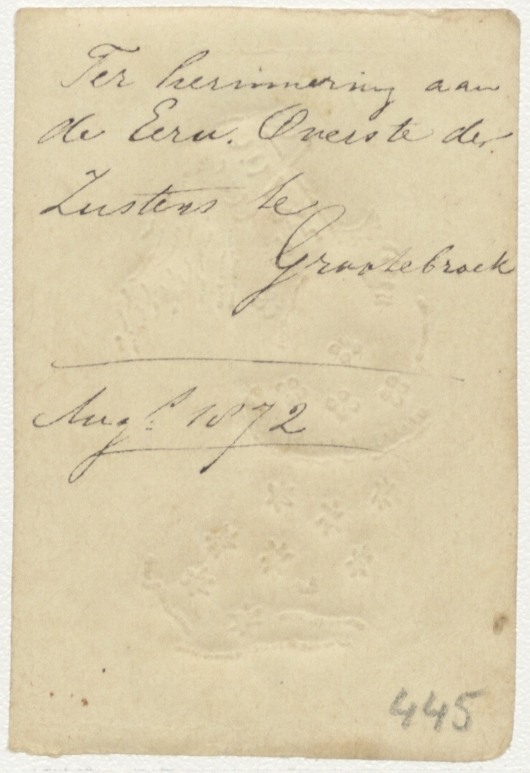 Ter herinnering aan
de Eerw. Overste der
Zusters te
Grootebroek
Augs. 1872
445